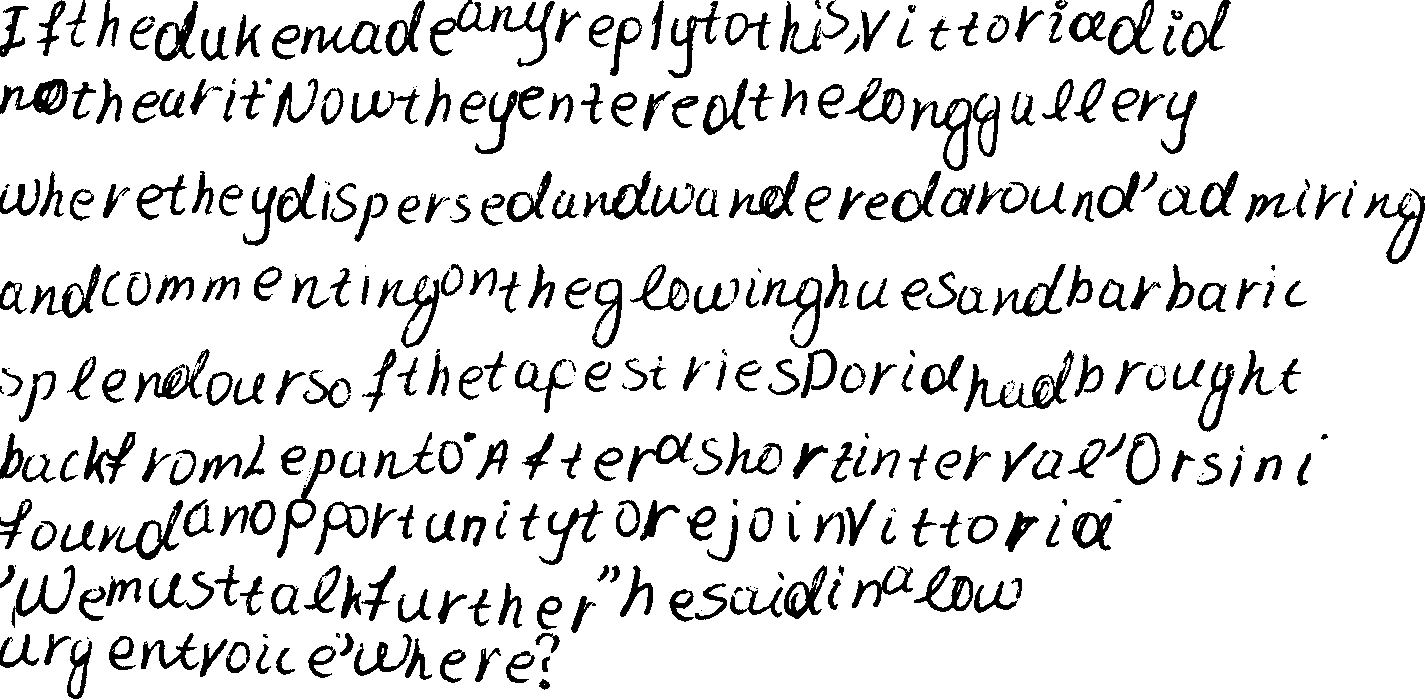 If the duke made any reply to this, Vittoria did
not hear it. Now they entered the long gallery
where they dispersed and wandered around, admiring
and commenting on the glowing hues and barbaric
splendours of the tapestries Doria had brought
back from Lepanto. After a short interval, Orsini
found an opportunity to rejoin Vittoria.
"We must talk further," he said in a low
urgent voice. "Where?